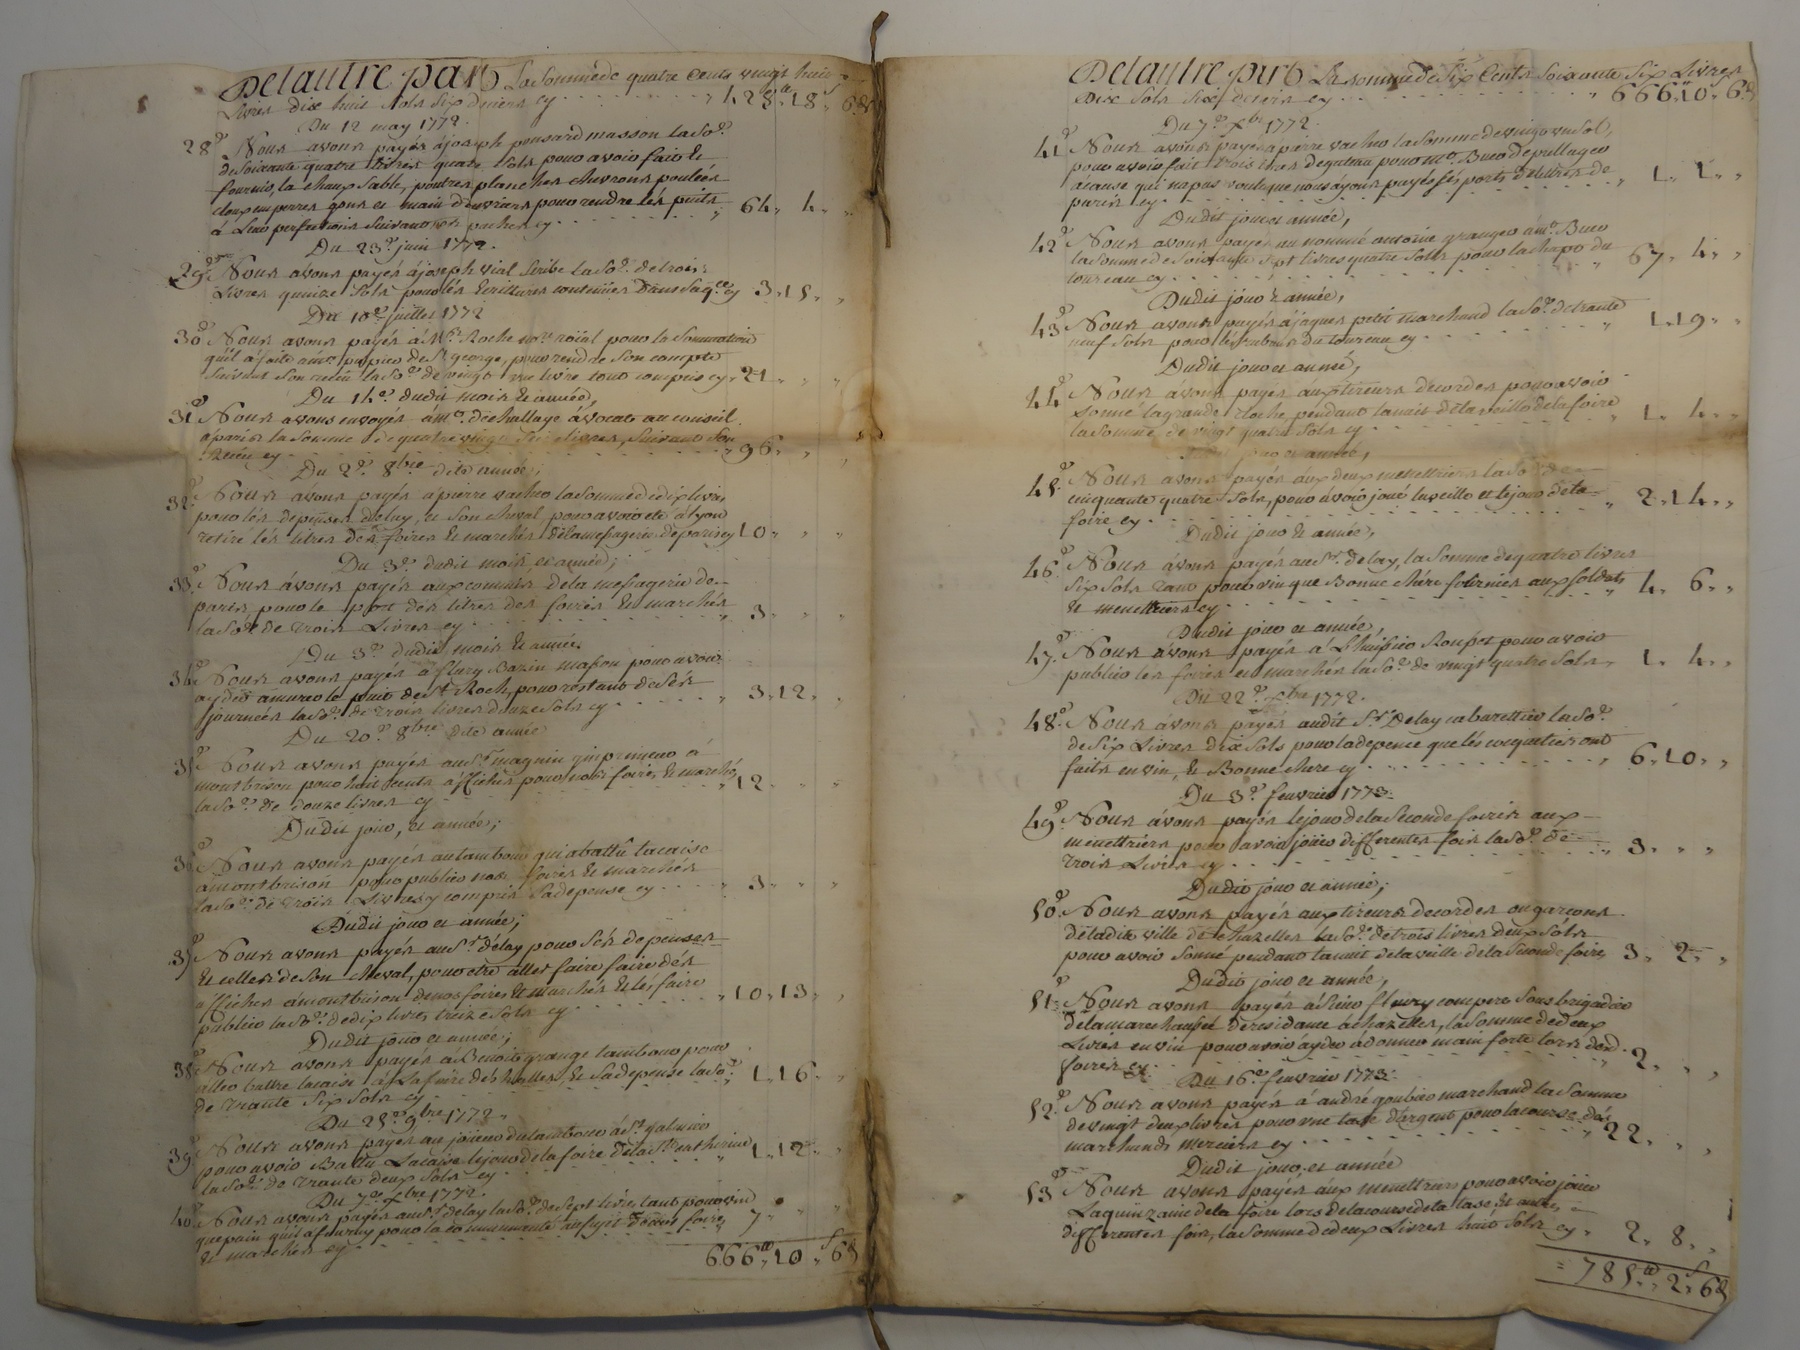 Delautre part La Somme de quatre cents vingt huit
Livres dix huit sols six deniers cy 428ᵗᵗ 18ˢ 6ᵈ
Du 12 may 1772.
28° Nous avons payés à joseph ponsard masson la So.ᵉ
de soixante quatre livres quatre sols pour avoir fait et
fournis, la chaux sable, poutres planches chevrons poulies
cloux emperres gons et main d'ouvriers pour rendre lés puits
à Leur perfections suivant nos paches cy 64, 4, ,
Du 23.ᵉ juin 1772.
29° Nous avons payés à joseph vial scribe la So.ᵉ de trois
Livres quinze sols pour lés Ecritures contenües dans sa q.ᶜᵉ cy 3, 15, ,
Du 10.ᵉ juillet 1772
30° Nous avons payés à M.ᵉ Roche roïal pour la sommation
qu'il a faite à de S.ᵗ george, pour rendre son compte
suivant son receu la So.ᵉ de vingt une livre tout compris cy 21, , ,
Du 14.ᵉ dudit mois et année,
31° Nous avons envoyés à M.ᵉ dechallaye avocat au conseil
à paris la somme de quatre vingt seize livres, suivant son
Receu cy 96, , ,
Du 2.ᵉ 8bre dite année;
32° Nous avons payés à pierre vacher la somme de dix livres
pour lés depenses de luy, et son cheval, pour avoir eté à lyon
retiré lés titres des foires et marchés de la messagerie de paris cy 10, , ,
Du 3.ᵉ dudit mois, et année;
33° Nous avons payés aux commis de la messagerie de
paris pour le port des titres des foires et marchés
la So.ᵉ de trois Livres cy 3, , ,
Du 3.ᵉ dudit mois et année
34° Nous avons payés à flury Bazin masson pour avoir
aydés à murer le puit de S.ᵗ Roch, pour restant de sés
journées la So.ᵉ de trois livres douze sols cy 3, 12, ,
Du 20.ᵉ 8bre dite année
35° Nous avons payés au S.ʳ magnin imprimeur à
montbrison pour huit cents affiches pour nos foires et marchés
la So.ᵉ de douze livres cy 12, , ,
Dudit jour, et année;
36° Nous avons payés au tambour qui a battû la caise
à montbrison pour publier nos foires et marchés
la So.ᵉ de trois Livres y compris sa depense cy 3, , ,
Dudit jour et année;
37° Nous avons payés au S.ʳ délay pour sés depenses
et celles de son cheval, pour etre aller faire faire dés
affiches à montbrison de nos foires et marchés et lés faire
publier la So.ᵉ de dix livres treize sols cy 10, 13, ,
Dudit jour et année;
38° Nous avons payés à Benoit grange tambour pour
aller battre la caise à la foire des halles, et sa depense la So.ᵉ
de trante six sols cy 1, 16, ,
Du 25.ᵉ 9bre 1772,
39° Nous avons payés au joueur du tambour à S.ᵗ galmier
pour avoir Battu La caise le jour de la foire de la S.ᵗᵉ Catherine
la So.ᵉ de trante deux sols cy 1, 12, ,
Du 7.ᵉ Xbre 1772.
40° Nous avons payés au S.ʳ delay la So.ᵉ de sept livres, tant pour vin
que pain qu'il a fourny pour la communauté au sujet foires
et marchés cy 7, , ,
666ᵗᵗ, 10ˢ, 6ᵈ
Delautre part La somme de Six Cents soixante six Livres
Dix sols six deniers cy 666, 10, 6ᵈ
Du 7.ᵉ Xbre 1772.
41° Nous avons payés à pierre vacher la somme de vingt un sol,
pour avoir fait trois de gateau pour M.ᵉ
à cause qui n'a pas voulu que nous ayons payés sés ports de lettres de
paris cy 1, 1, ,
Dudit jour et année,
42° Nous avons payés au nommé antoine granger à M.ᵉ
la somme de soixante sept livres quatre sols pour la chapt du
toureau cy 67, 4, ,
Dudit jour et année,
43° Nous avons payés à jaques petit marchand la So.ᵉ de trante
neuf sols pour lés rubans du toureau cy 1, 19, ,
Dudit jour et année,
44° Nous avons payés aux tireurs de cordes pour avoir
sonné la grande cloche pendant la nuit de la veille de la foire
la somme de vingt quatre sols cy 1, 4, ,
Dudit jour et année,
45° Nous avons payés aux deux menettriers la So.ᵉ de
cinquante quatre sols, pour avoir joué la veille et le jour de la
foire cy 2, 14, ,
Dudit jour et année,
46° Nous avons payés au S.ʳ delay, la somme de quatre livres
six sols tant pour vin que Bonne chere fournies aux soldats
et menettriers cy 4, 6, ,
Dudit jour et année,
47° Nous avons payés à L'huissier Rouset pour avoir
publier les foires et marchés la So.ᵉ de vingt quatre sols 1, 4, ,
Du 22.ᵉ Xbre 1772.
48° Nous avons payés audit S.ʳ Delay cabarettier la So.ᵉ
de six Livres dix sols pour la depence que lés coquetiers ont
faits en vin, et Bonne chere cy 6, 10, ,
Du 3.ᵉ feuvrier 1773.
49° Nous avons payés le jour de la seconde foire aux
menettriers pour avoir joüés differentes fois la So.ᵉ de
trois Livres cy 3, , ,
Dudit jour et année;
50° Nous avons payés aux tireurs de cordes ou garçons
de la dite ville de chazelles la So.ᵉ de trois livres deux sols
pour avoir sonné pendant la nuit de la veille de la seconde foire 3, 2, ,
Dudit jour et année,
51° Nous avons payés à Sieur fleury compere sous brigadier
de la marechaussée de residante à chazelles, la somme de deux
Livres en vin pour avoir aydés à donner main forte lors desd.
foires cy 2, , ,
Du 16.ᵉ feuvrier 1773.
52° Nous avons payés à andré goubier marchand la somme
de vingt deux livres pour une tase d'argent pour la course dés
marchands merciers cy 22, , ,
Dudit jour et année
53° Nous avons payés aux menettriers pour avoir joüer
La quinzaine de la foire lors de la course de la tase et autres
differentes fois, la somme de deux Livres huit sols cy 2, 8, ,
= 785ᵗᵗ, 2ˢ, 6ᵈ